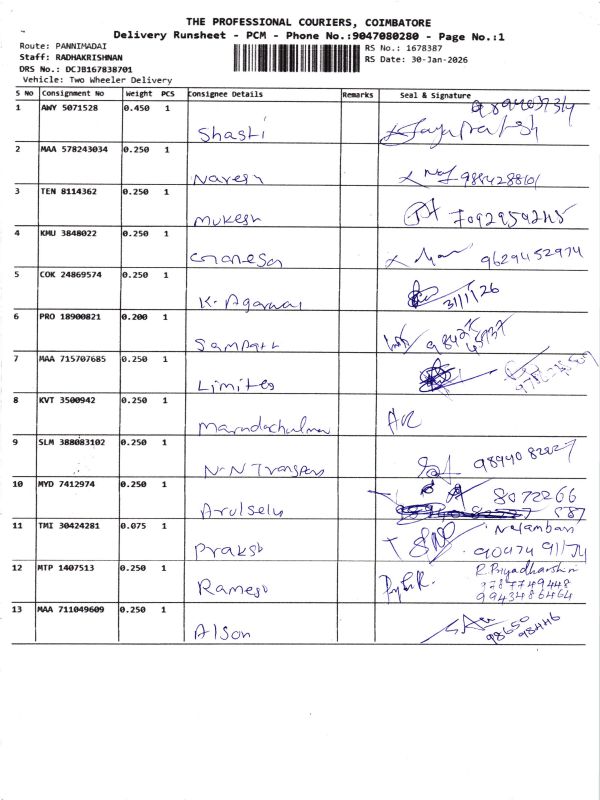 THE PROFESSIONAL COURIERS, COIMBATORE
Delivery Runsheet - PCM - Phone No.:9047080280 - Page No.:1
Route: PANNIMADAI
RS No.: 1678387
Staff: RADHAKRISHNAN
RS Date: 30-Jan-2026
DRS No.: DCJB167838701
Vehicle: Two Wheeler Delivery
S No Consignment No Weight PCS Consignee Details Remarks Seal & Signature
1 AWY 5071528 0.450 1
Shasti
2 MAA 578243034 0.250 1
Naresh
3 TEN 8114362 0.250 1
Mukesh 7092959245
4 KMU 3848022 0.250 1
Ganesh 9629452974
5 COK 24869574 0.250 1
K. Agarwal 31/1/26
6 PRO 18900821 0.200 1
Sampath
7 MAA 715707685 0.250 1
Limited
8 KVT 3500942 0.250 1
AR
9 SLM 388083102 0.250 1
N.N Transpors 9894082227
10 MYD 7412974 0.250 1
8072266
Arulselv 587
11 TMI 30424281 0.075 1
Praksh
12 MTP 1407513 0.250 1
R. Priyadharshini
Ramesh
9943486464
13 MAA 711049609 0.250 1
Alson 98650
98446